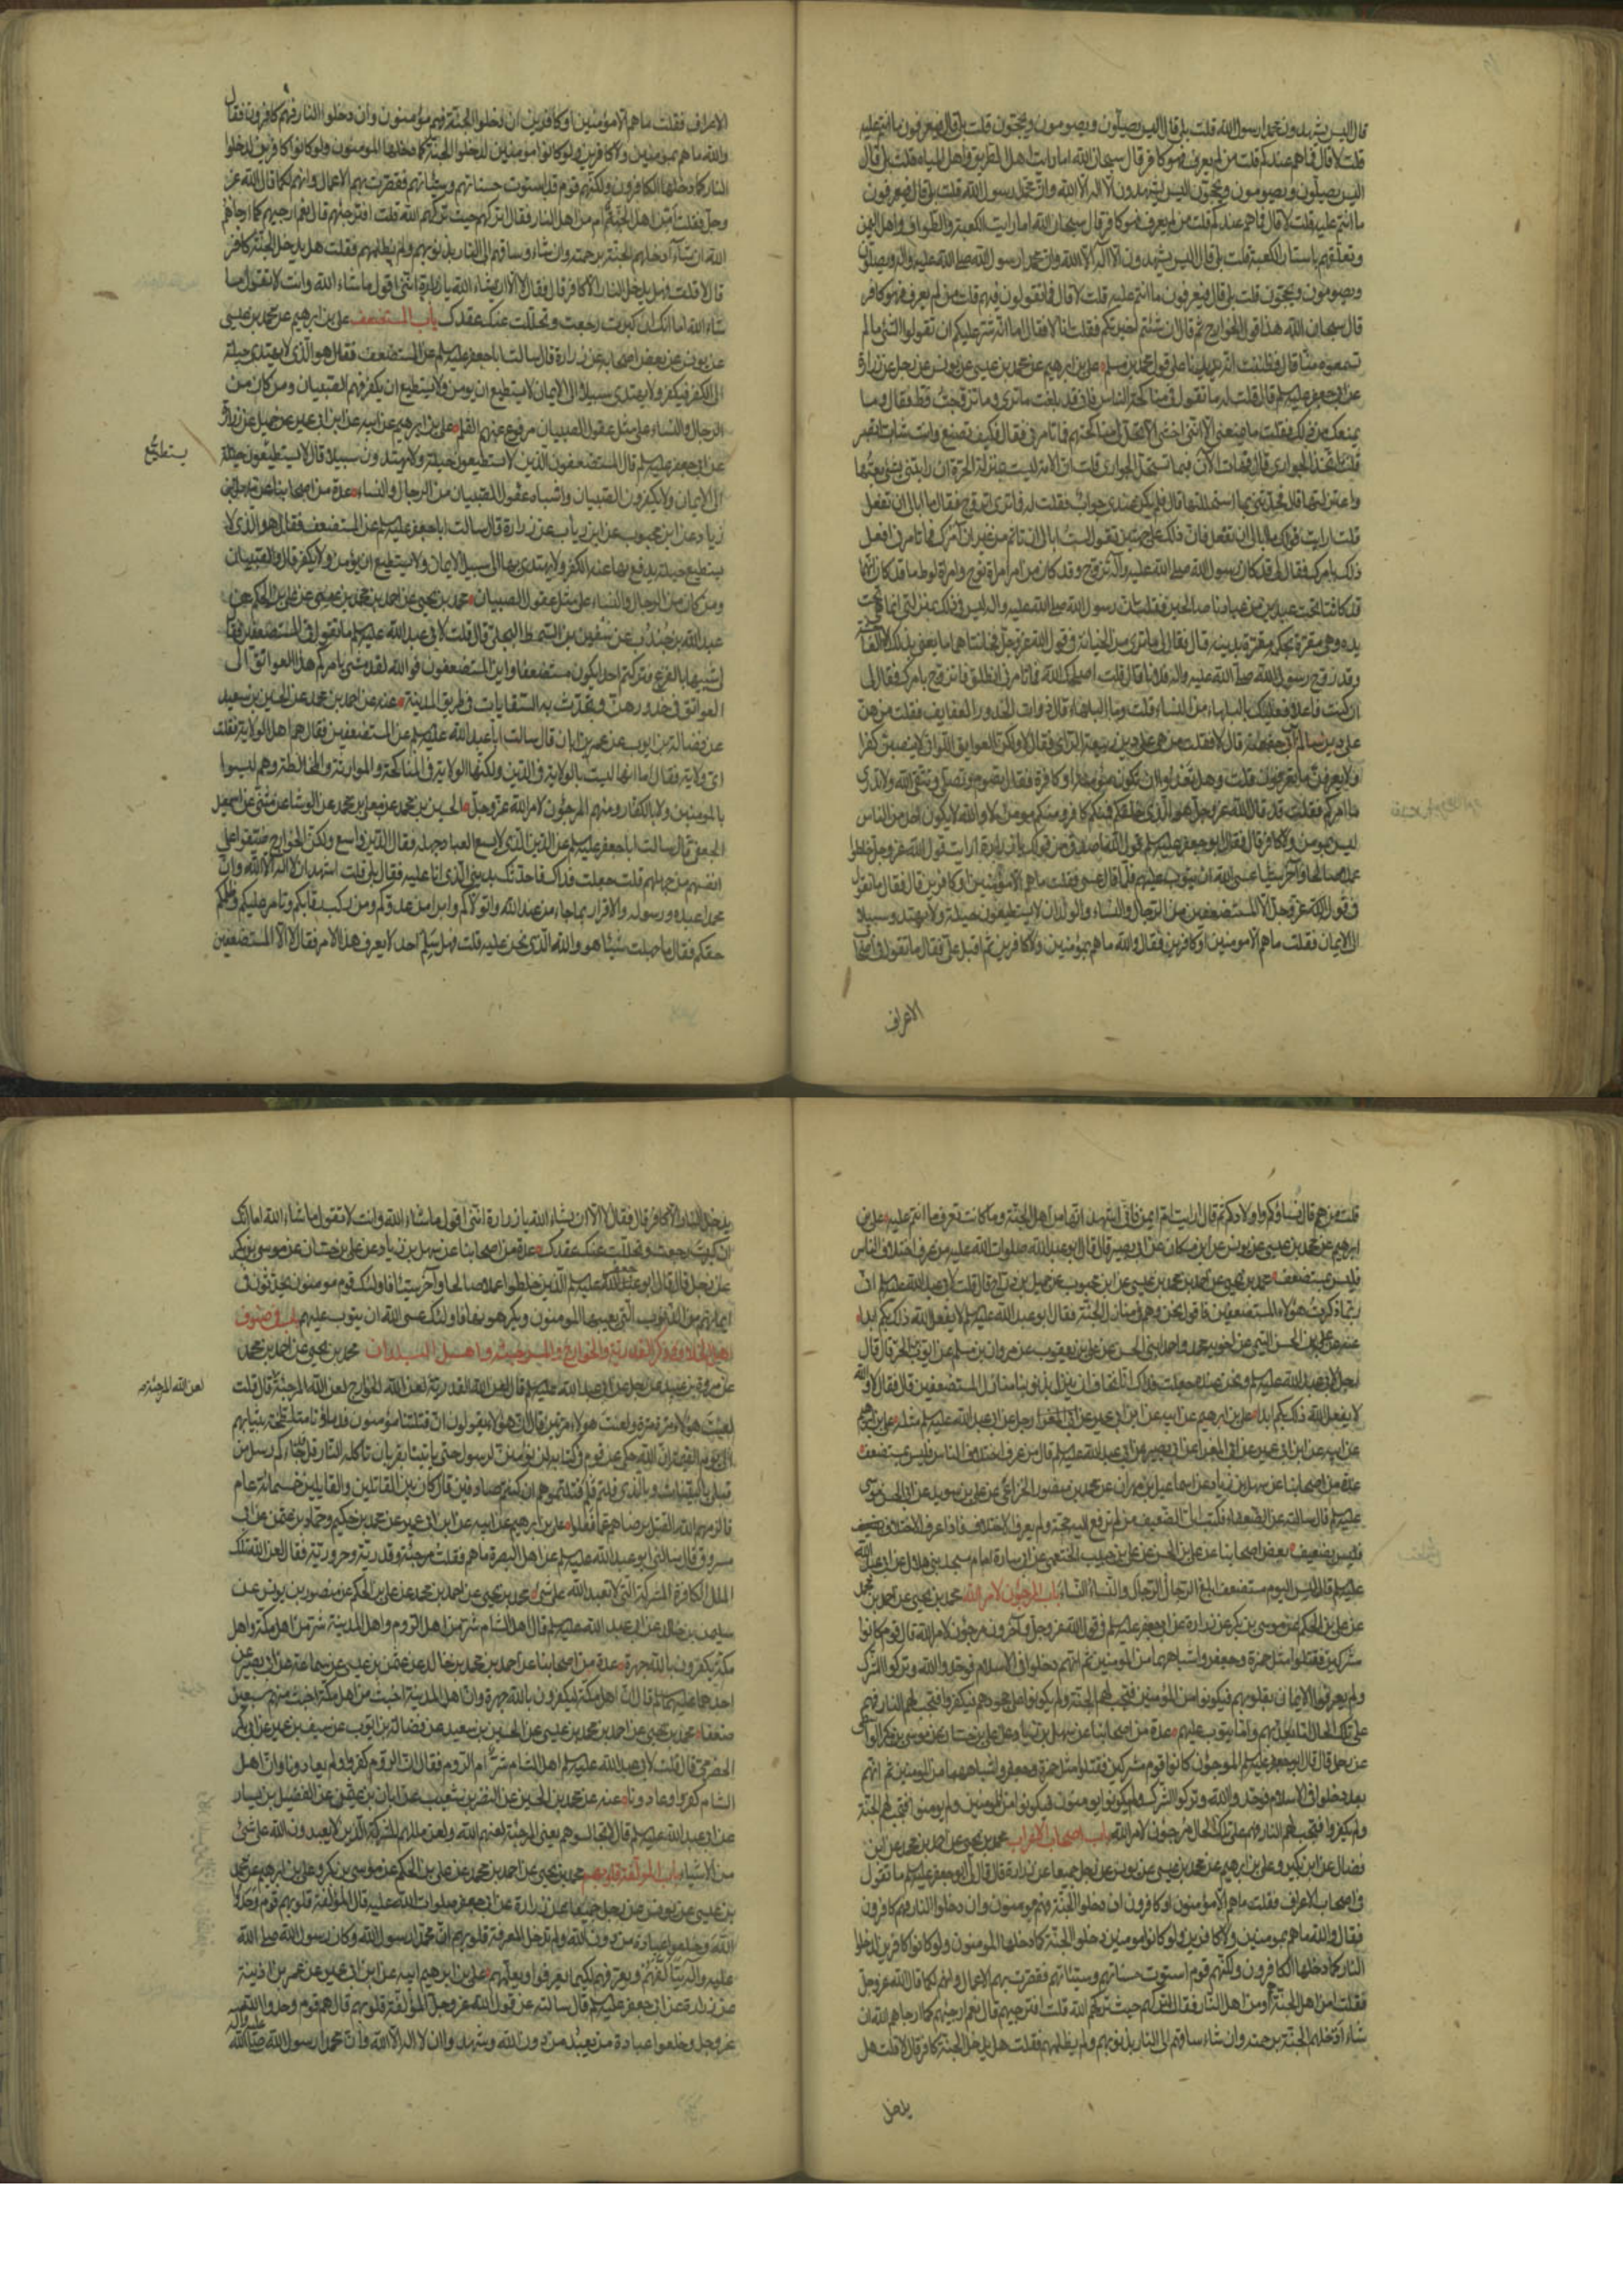 قال اليس يشهدون محمدا رسول الله قلت بلى قال اليس يصلون ويصومون ويحجون قلت بلى قال فيعرفون ما انتم عليه
قلت لا قال فما هم عندكم قلت من لم يعرف فهو كافر قال سبحان الله اما رايت اهل الطريق واهل المياه قلت بلى قال
اليس يصلون ويصومون ويحجون اليس يشهدون ان لا اله الا الله وان محمدا رسول الله قلت بلى قال فيعرفون
ما انتم عليه قلت لا قال فما هم عندكم قلت من لم يعرف فهو كافر قال سبحان الله اما رايت الكعبة والطواف واهل اليمن
وتعلقهم باستار الكعبة قلت بلى قال اليس يشهدون ان لا اله الا الله وان محمدا رسول الله صلى الله عليه واله ويصلون
ويصومون ويحجون قلت بلى قال فيعرفون ما انتم عليه قلت لا قال فما تقولون فيهم قلت من لم يعرف فهو كافر
قال سبحان الله هذا قول الخوارج ثم قال ان شئتم اخبرتكم فقلت انا لا فقال اما انه شر عليكم ان تقولوا الشئ ما لم
تسمعوه منا قال فظننت انه يديرنا على قول محمد بن مسلم علي بن ابرهيم عن محمد بن عيسى عن يونس عن رجل عن زرارة
عن ابي جعفر عليه السلم قال قلت له ما تقول في مناكحة الناس فاني قد بلغت ما ترى وما تزوجت قط فقال وما
يمنعك من ذلك فقلت ما يمنعني الا انني اخشى ان لا تحل لي مناكحتهم فما تامرني فقال فكيف تصنع وانت شاب اتصبر
قلت اتخذ الجواري قال فهات الان فبما تستحل الجواري قلت ان الامة ليست بمنزلة الحرة ان رابتني بشئ بعتها
واعتزلتها قال فحدثني بما استحللتها قال فلم يكن عندي جواب فقلت له فما ترى اتزوج فقال ما ابالي ان تفعل
قلت ارايت قولك ما ابالي ان تفعل فان ذلك على جهتين تقول لست ابالي ان تاثم من غير ان آمرك فما تامرني افعل
ذلك بامرك فقال لي قد كان رسول الله صلى الله عليه وآله تزوج وقد كان من امر امراة نوح وامراة لوط ما قد كان انهما
قد كانتا تحت عبدين من عبادنا صالحين فقلت ان رسول الله صلى الله عليه واله ليس في ذلك بمنزلتي انما هي تحت
يده وهي مقرة بحكمه مقرة بدينه قال فقال لي ما ترى من الخيانة في قول الله عز وجل فخانتاهما ما يعني بذلك الا الفاحشة
وقد زوج رسول الله صلى الله عليه واله فلانا قال قلت اصلحك الله فما تامرني انطلق فاتزوج بامرك فقال لي
ان كنت فاعلا فعليك بالبلهاء من النساء قلت وما البلهاء قال ذوات الخدور العفايف فقلت من هن
ولا يعرفن ما تعرفون قلت وهل تعدوا ان تكون مؤمنة او كافرة فقال تصوم وتصلي وتتقي الله ولا تدري
ما امركم فقلت قد قال الله عز وجل هو الذي خلقكم فمنكم كافر ومنكم مومن لا والله لا يكون احد من الناس
ليس بمومن ولا كافر قال فقال ابو جعفر عليه السلم قول الله اصدق من قولك يا زرارة ارايت قول الله عز وجل خلطوا
عملا صالحا وآخر سيئا عسى الله ان يتوب عليهم فلما قال عسى فقلت ما هم الا مؤمنين او كافرين قال فقال ما تقول
في قول الله عز وجل الا المستضعفين من الرجال والنساء والولدان لا يستطيعون حيلة ولا يهتدون سبيلا
الى الايمان فقلت ما هم الا مومنين او كافرين فقال والله ما هم بمؤمنين ولا كافرين ثم اقبل علي فقال ما تقول في اصحاب
الاعراف
الاعراف فقلت ما هم الا مؤمنين او كافرين ان دخلوا الجنة فهم مؤمنون وان دخلوا النار فهم كافرون فقال
والله ما هم بمومنين ولا كافرين ولو كانوا مومنين لدخلوا الجنة كما دخلها المومنون ولو كانوا كافرين لدخلوا
النار كما دخلها الكافرون ولكنهم قوم قد استوت حسناتهم وسيئاتهم فقصرت بهم الاعمال وانهم لكما قال الله عز
وجل فقلت امن اهل الجنة هم ام من اهل النار فقال اتركهم حيث تركهم الله قلت افترجئهم قال نعم ارجيهم كما ارجاهم
الله ان شاء ادخلهم الجنة برحمته وان شاء ساقهم الى النار بذنوبهم ولم يظلمهم فقلت هل يدخل الجنة كافر
قال لا قلت فهل يدخل النار الا كافر قال فقال لا الا ان يشاء الله يا زرارة انني اقول ما شاء الله وانت لا تقول ما
شاء الله اما انك ان كبرت رجعت وتحللت عنك عقدك باب المستضعف علي بن ابرهيم عن محمد بن عيسى
عن يونس عن بعض اصحابه عن زرارة قال سالت ابا جعفر عليه السلم عن المستضعف فقال هو الذي لا يهتدي حيلة
الى الكفر فيكفر ولا يهتدي سبيلا الى الايمان لا يستطيع ان يومن ولا يستطيع ان يكفر فهم الصبيان ومن كان من
الرجال والنساء على مثل عقول الصبيان مرفوع عنهم القلم علي بن ابرهيم عن ابيه عن ابن ابي عمير عن جميل عن زرارة
عن ابي جعفر عليه السلم قال المستضعفون الذين لا يستطيعون حيلة ولا يهتدون سبيلا قال لا يستطيعون حيلة
الى الايمان ولا يكفرون الصبيان واشباه عقول الصبيان من الرجال والنساء عدة من اصحابنا عن سهل بن
زياد عن ابن محبوب عن ابن رياب عن زرارة قال سالت ابا جعفر عليه السلم عن المستضعف فقال هو الذي لا
يستطيع حيلة يدفع بها عنه الكفر ولا يهتدي بها الى سبيل الايمان ولا يستطيع ان يؤمن ولا يكفر قال والصبيان
ومن كان من الرجال والنساء على مثل عقول الصبيان محمد بن يحيى عن احمد بن محمد بن عيسى عن علي بن الحكم عن
عبد الله بن جندب عن سفين بن السمط البجلي قال قلت لابي عبد الله عليه السلم ما تقول في المستضعفين فقال
لي شبيها بالفزع فتركتم احدا يكون مستضعفا واين المستضعفون فوالله لقد مشى بامركم هذا العواتق الى
العواتق في خدورهن وتحدث به السقايات في طريق المدينة عنه عن احمد بن محمد عن الحسين بن سعيد
عن فضالة بن ايوب عن عمر بن ابان قال سالت ابا عبد الله عليه السلم عن المستضعفين فقال هم اهل الولاية فقلت
اي ولاية فقال اما انها ليست بالولاية في الدين ولكنها الولاية في المناكحة والموارثة والمخالطة وهم ليسوا
بالمومنين ولا بالكفار ومنهم المرجون لامر الله عز وجل الحسين بن محمد عن معلى بن محمد عن الوشا عن مثنى عن اسمعيل
الجعفي قال سالت ابا جعفر عليه السلم عن الدين الذي لا يسع العباد جهله فقال الدين واسع ولكن الخوارج ضيقوا على
انفسهم من جهلهم قلت جعلت فداك فاحدثك بديني الذي انا عليه فقال بلى قلت اشهد ان لا اله الا الله وان
محمدا عبده ورسوله والاقرار بما جاء من عند الله واتولاكم وابرا من عدوكم ومن ركب رقابكم وتامر عليكم وظلمكم
حقكم فقال ما جهلت شيئا هو والله الذي نحن عليه قلت فهل سلم احد لا يعرف هذا الامر فقال لا الا المستضعفين
يستطيع
قلت من هم قال نساؤكم واولادكم ثم قال ارايت ام ايمن فاني اشهد انها من اهل الجنة وما كانت تعرف ما انتم عليه علي بن
ابرهيم عن محمد بن عيسى عن يونس عن ابن مسكان عن ابي بصير قال قال ابو عبد الله صلوات الله عليه من عرف اختلاف الناس
فليس بمستضعف محمد بن يحيى عن احمد بن محمد بن عيسى عن ابن محبوب عن جميل بن دراج قال قلت لابي عبد الله عليه السلم اني
ربما ذكرت هؤلاء المستضعفين فاقول نحن وهم في منازل الجنة فقال ابو عبد الله عليه السلم لا يفعل الله ذلك بكم ابدا
عنه عن علي بن الحسن التيمي عن اخويه محمد واحمد ابني الحسن عن علي بن يعقوب عن مروان بن مسلم عن ايوب بن الحر قال قال
رجل لابي عبد الله عليه السلم ونحن عنده جعلت فداك انا نخاف ان ننزل بذنوبنا منازل المستضعفين قال فقال لا والله
لا يفعل الله ذلك بكم ابدا علي بن ابرهيم عن ابيه عن ابن ابي عمير عن رجل عن ابي عبد الله عليه السلم مثله علي بن ابرهيم
عن ابيه عن ابن ابي عمير عن ابي المغرا عن ابي بصير عن ابي عبد الله عليه السلم قال من عرف اختلاف الناس فليس بمستضعف
عدة من اصحابنا عن سهل بن زياد عن اسماعيل بن مهران عن محمد بن منصور الخزاعي عن علي بن سويد عن ابي الحسن موسى
عليه السلم قال سالته عن الضعفاء فكتب الي الضعيف من لم ترفع اليه حجة ولم يعرف الاختلاف فاذا عرف الاختلاف
فليس بضعيف بعض اصحابنا عن علي بن الحسن عن علي بن حبيب الخثعمي عن ابي سارة امام مسجد بني هلال عن ابي عبد الله
عليه السلم قال ليس اليوم مستضعف ابلغ الرجال الرجال والنساء النساء باب المرجون لامر الله محمد بن يحيى عن احمد بن محمد
عن علي بن الحكم عن موسى بن بكر عن زرارة عن ابي جعفر عليه السلم في قول الله عز وجل وآخرون مرجون لامر الله قال قوم كانوا
مشركين فقتلوا مثل حمزة وجعفر واشباههما من المومنين ثم انهم دخلوا في الاسلام فوحدوا الله وتركوا الشرك
ولم يعرفوا الايمان بقلوبهم فيكونوا من المؤمنين فتجب لهم الجنة ولم يكونوا على جحودهم فيكفروا فتجب لهم النار فهم
على تلك الحال اما يعذبهم واما يتوب عليهم عدة من اصحابنا عن سهل بن زياد عن علي بن حسان عن موسى بن بكر الواسطي
عن رجل قال قال ابو جعفر عليه السلم المرجون كانوا قوم مشركين فقتلوا مثل حمزة وجعفر واشباههما من المومنين ثم انهم
بعد دخلوا في الاسلام فوحدوا الله وتركوا الشرك ولم يكونوا يومنون فيكونوا من المومنين ولم يومنوا فتجب لهم الجنة
ولم يكفروا فتجب لهم النار فهم على تلك الحال مرجون لامر الله باب اصحاب الاعراف محمد بن يحيى عن احمد بن محمد عن ابن
فضال عن ابن بكير وعلي بن ابرهيم عن محمد بن عيسى عن يونس عن رجل جميعا عن زرارة قال قال لي ابو جعفر عليه السلم ما تقول
في اصحاب الاعراف فقلت ما هم الا مؤمنون او كافرون ان دخلوا الجنة فهم مومنون وان دخلوا النار فهم كافرون
فقال والله ما هم بمومنين ولا كافرين ولو كانوا مومنين دخلوا الجنة كما دخلها المومنون ولو كانوا كافرين لدخلوا
النار كما دخلها الكافرون ولكنهم قوم استوت حسناتهم وسيئاتهم فقصرت بهم الاعمال وانهم لكما قال الله عز وجل
فقلت امن اهل الجنة هم او من اهل النار فقال اتركهم حيث تركهم الله قلت افترجيهم قال نعم ارجيهم كما ارجاهم الله ان
شاء ادخلهم الجنة برحمته وان شاء ساقهم الى النار بذنوبهم ولم يظلمهم فقلت هل يدخل الجنة كافر قال لا قلت هل
يدخل
يدخل النار الا كافر قال فقال لا الا ان يشاء الله يا زرارة انني اقول ما شاء الله وانت لا تقول ما شاء الله اما انك
ان كبرت رجعت وتحللت عنك عقدك عدة من اصحابنا عن سهل بن زياد عن علي بن حسان عن موسى بن بكر
عن رجل قال قال ابو جعفر عليه السلم الذين خلطوا عملا صالحا وآخر سيئا فاولئك قوم مومنون يحدثون في
ايمانهم من الذنوب التي يعيبها المومنون ويكرهونها فاولئك عسى الله ان يتوب عليهم باب في صنوف
اهل الخلاف وذكر القدرية والخوارج والمرجئة واهل البلدان محمد بن يحيى عن احمد بن محمد
عن مروك بن عبيد عن رجل عن ابي عبد الله عليه السلم قال لعن الله القدرية لعن الله الخوارج لعن الله المرجئة قال قلت
لعنت هؤلاء مرة مرة ولعنت هولاء مرتين قال ان هؤلاء يقولون ان قتلتنا مؤمنون فدماؤنا متلطخة بثيابهم
الى يوم القيمة ان الله حكى عن قوم في كتابه لن نؤمن لرسول حتى ياتينا بقربان تاكله النار قل قد جاءكم رسل من
قبلي بالبينات وبالذي قلتم فلم قتلتموهم ان كنتم صادقين قال كان بين القاتلين والقايلين خمسمائة عام
فالزمهم الله القتل برضاهم بما فعلوا علي بن ابرهيم عن ابيه عن ابن ابي عمير عن محمد بن حكيم وحماد بن عثمن عن ابي
مسروق قال سالني ابو عبد الله عليه السلم عن اهل البصرة ما هم فقلت مرجئة وقدرية وحرورية فقال لعن الله تلك
الملل الكافرة المشركة التي لا تعبد الله على شئ محمد بن يحيى عن احمد بن محمد عن علي بن الحكم عن منصور بن يونس عن
سليمن بن خالد عن ابي عبد الله عليه السلم قال اهل الشام شر من اهل الروم واهل المدينة شر من اهل مكة واهل
مكة يكفرون بالله جهرة عدة من اصحابنا عن احمد بن محمد بن خالد عن عثمن بن عيسى عن سماعة عن ابي بصير عن
احدهما عليهما السلم قال ان اهل مكة ليكفرون بالله جهرة وان اهل المدينة اخبث من اهل مكة اخبث منهم سبعين
ضعفا محمد بن يحيى عن احمد بن محمد بن عيسى عن الحسين بن سعيد عن فضالة بن ايوب عن سيف بن عميرة عن ابي بكر
الحضرمي قال قلت لابي عبد الله عليه السلم اهل الشام شر ام الروم فقال ان الروم كفروا ولم يعادونا وان اهل
الشام كفروا وعادونا عنه عن محمد بن الحسين عن النضر بن شعيب عن ابان بن عثمن عن الفضيل بن يسار
عن ابي عبد الله عليه السلم قال لا تجالسوهم يعني المرجئة لعنهم الله ولعن مللهم المشركة الذين لا يعبدون الله على شئ
من الاشياء باب المؤلفة قلوبهم محمد بن يحيى عن احمد بن محمد عن علي بن الحكم عن موسى بن بكر وعلي بن ابرهيم عن محمد
بن عيسى عن يونس عن رجل جميعا عن زرارة عن ابي جعفر صلوات الله عليه قال المؤلفة قلوبهم قوم وحدوا
الله وخلعوا عبادة من دون الله ولم تدخل المعرفة قلوبهم ان محمدا رسول الله وكان رسول الله صلى الله
عليه وآله يتالفهم ويعرفهم لكيما يعرفوا ويعلمهم علي بن ابرهيم عن ابيه عن ابن ابي عمير عن عمر بن اذينة
عن زرارة عن ابي جعفر عليه السلم قال سالته عن قول الله عز وجل المؤلفة قلوبهم قال هم قوم وحدوا الله
عز وجل وخلعوا عبادة من يعبد من دون الله وشهدوا ان لا اله الا الله وان محمدا رسول الله صلى الله عليه واله
لعن الله المرجئة